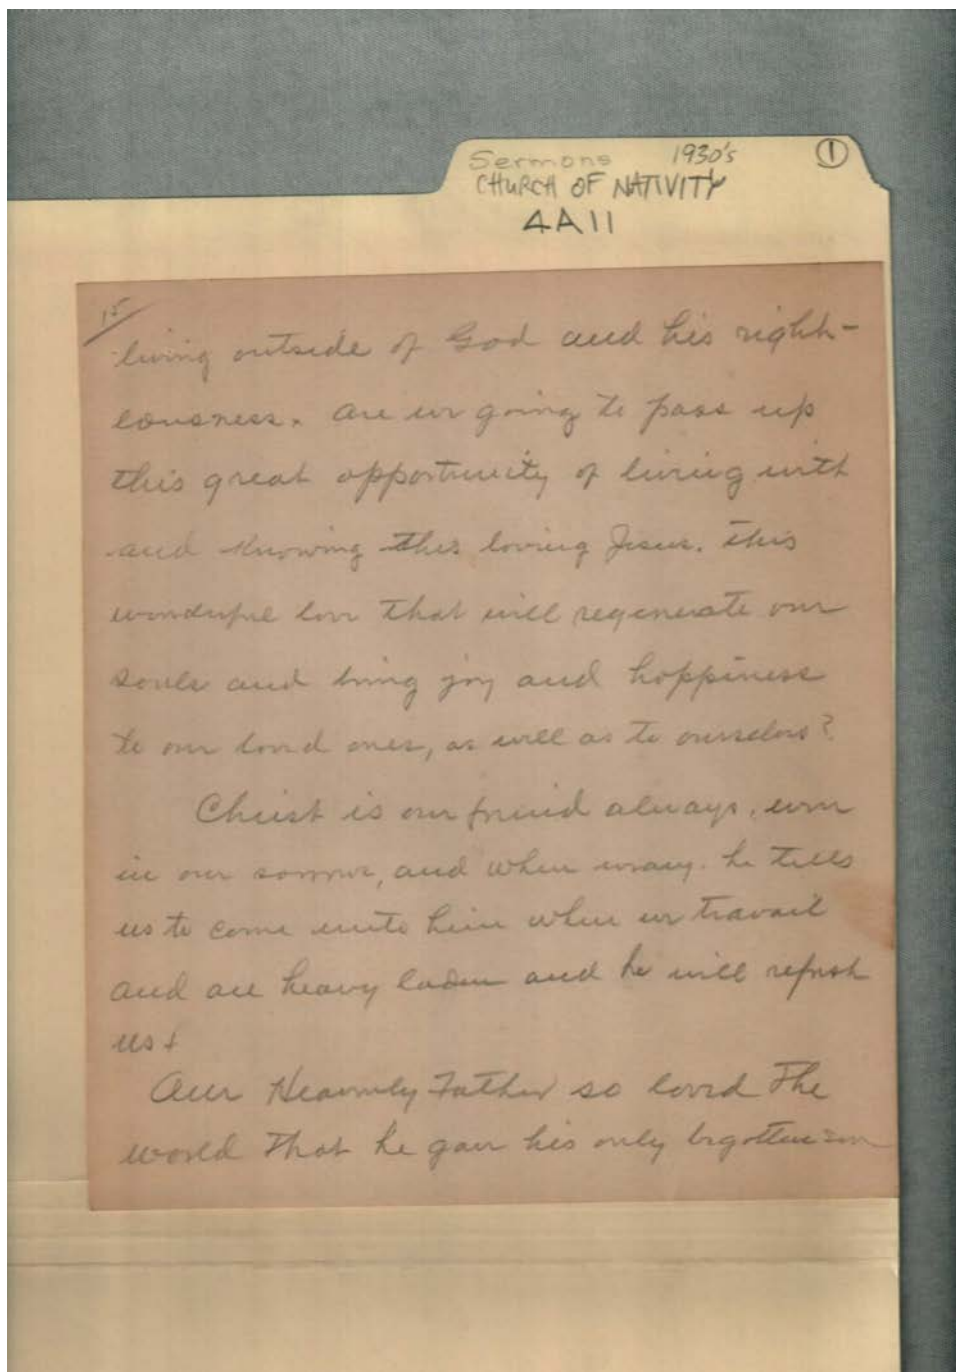 Sermons 1930's ①
CHURCH OF NATIVITY
4A11
15/
living outside of God and his right-
eousness. Are we going to pass up
this great opportunity of living with
and knowing this loving Jesus. This
wonderful love that will regenerate our
souls and bring joy and happiness
to our loved ones, as well as to ourselves?
Christ is our friend always, even
in our sorrow, and when weary. he tells
us to come unto him when we travail
and are heavy laden and he will refresh
us.
Our Heavenly Father so loved The
world that he gave his only begotten son